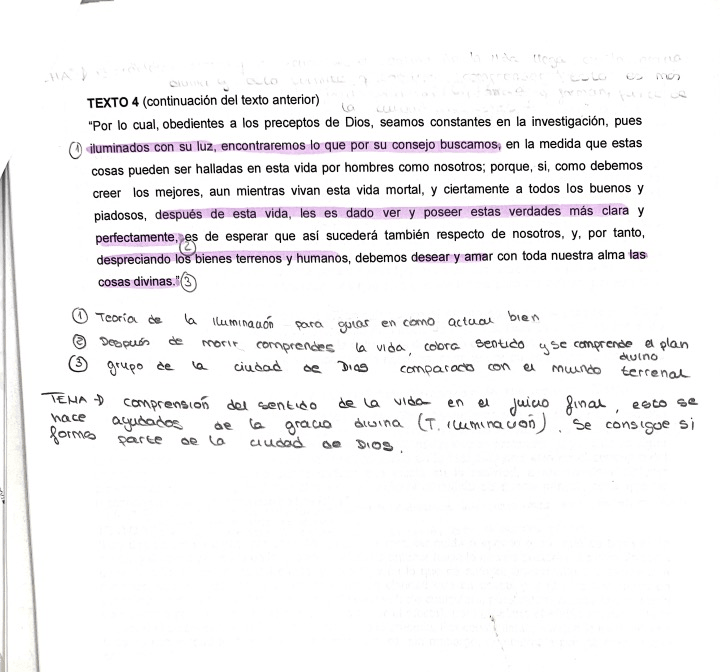 TEXTO 4 (continuación del texto anterior)
"Por lo cual, obedientes a los preceptos de Dios, seamos constantes en la investigación, pues
① iluminados con su luz, encontraremos lo que por su consejo buscamos, en la medida que estas
cosas pueden ser halladas en esta vida por hombres como nosotros; porque, si, como debemos
creer los mejores, aun mientras vivan esta vida mortal, y ciertamente a todos los buenos y
piadosos, después de esta vida, les es dado ver y poseer estas verdades más clara y
perfectamente, es de esperar que así sucederá también respecto de nosotros, y, por tanto,
②
despreciando los bienes terrenos y humanos, debemos desear y amar con toda nuestra alma las
cosas divinas." ③
① Teoría de la iluminación para guiar en como actuar bien
② Después de morir comprendes la vida, cobra sentido y se comprende el plan
divino
③ grupo de la ciudad de Dios comparado con el mundo terrenal
TEMA → comprensión del sentido de la vida en el juicio final, esto se
hace ayudados de la gracia divina (T. iluminación). Se consigue si
formas parte de la ciudad de Dios.